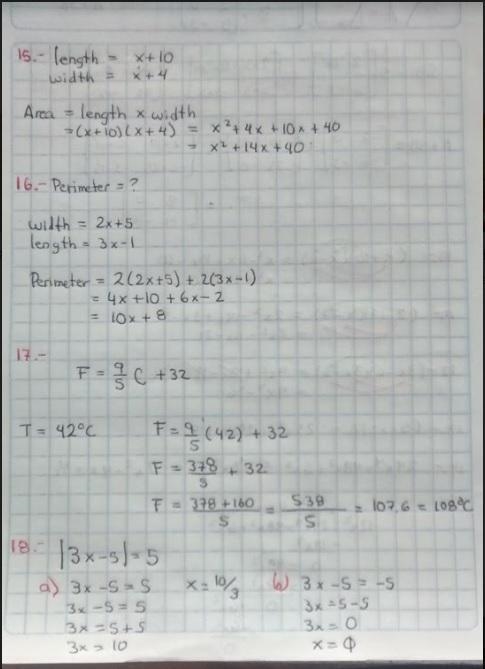 15.- length = x+10
width = x+4
Area = length x width
=(x+10)(x+4) = x²+4x+10x+40
= x²+14x+40
16.- Perimeter = ?
width = 2x+5
length = 3x-1
Perimeter = 2(2x+5) + 2(3x-1)
= 4x+10 + 6x-2
= 10x+8
17.-
F = 9/5 C + 32
T = 42°C F = 9/5 (42) + 32
F = 378/5 + 32
F = 378+160/5 = 538/5 = 107,6 = 108°C
18.- |3x-5| = 5
a) 3x-5 = 5 x = 10/3 b) 3x-5 = -5
3x-5 = 5 3x = 5-5
3x = 5+5 3x = 0
3x = 10 x = 0